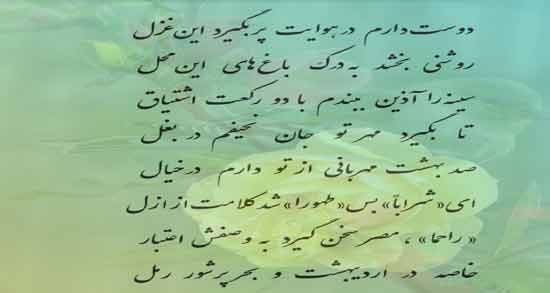 دوست دارم در هوایت پر بگیرد این غزل
روشنی بخشد به درک باغ‌های این محل
سینه را آذین ببندم با دو رکعت اشتیاق
تا بگیرد مهر تو جان نحیفم در بغل
صد بهشت مهربانی از تو دارم در خیال
ای «شراباً» بس «طهورا» شد کلامت از ازل
«راحما»، مصر سخن گیرد به وصفش اعتبار
خاصه در اردیبهشت و بحر پرشور رمل